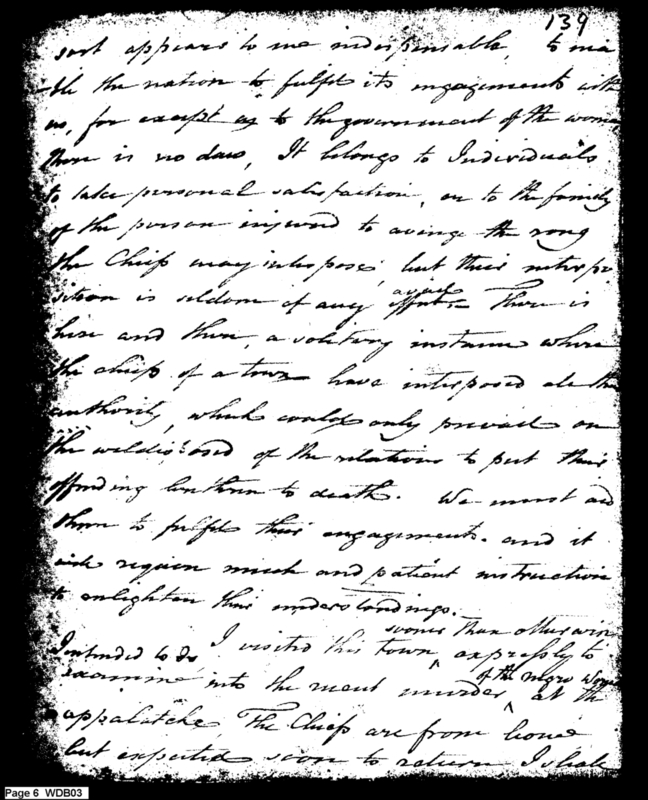 139
sort appears to me indispensable, to ena
ble the nation to fulfil its engagements with
us, for except as to the government of the women
there is no law, It belongs to Individuals
to take personal satisfaction, or to the family
of the person injured to avenge the rong
the Chiefs may interpose, but their interpo
sition is seldom of any avail There is
here and there, a solitary instance where
the chiefs of a town have interposed all their
authority, which could only prevail on
the well disposed of the relations to put their
offending brethren to death. We must aid
them to fulfil their engagements. and it
will require much and patient instruction
to enlighten their understandings.
sooner than otherwise
Intended to do I visited this town, expressly to
of the negro Woman
examine into the recent murder at the
appalatche, The Chiefs are from home
but expected soon to return I shall
Page 6 WDB03